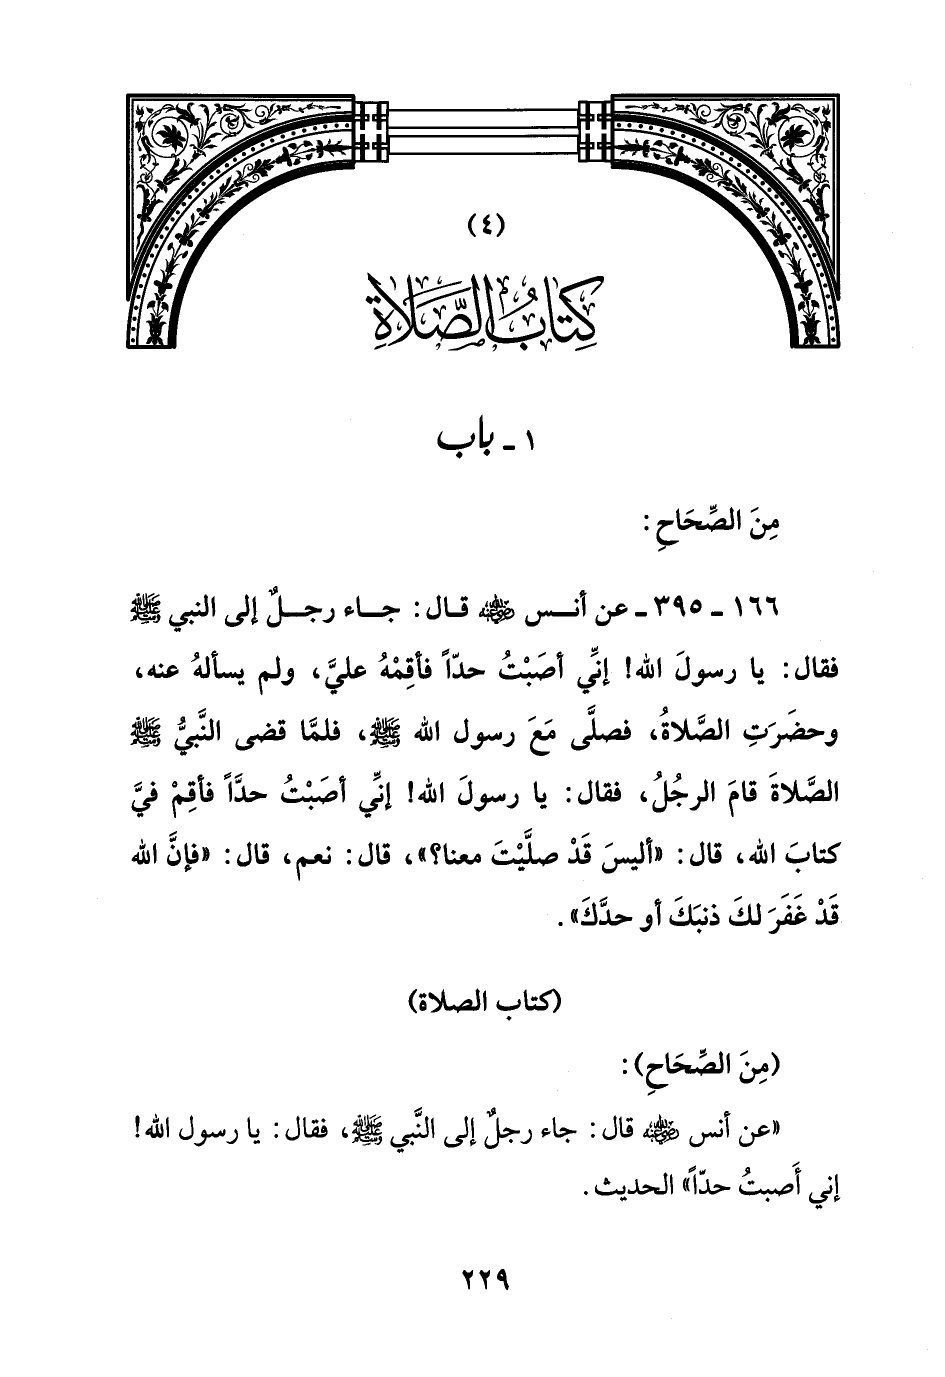 (٤)
كِتَابُ الصَّلَاةِ
١ - باب
مِنَ الصِّحَاحِ:
١٦٦ - ٣٩٥ - عن أنس ﷺ قال: جاء رجلٌ إلى النبي ﷺ
فقال: يا رسولَ الله! إنِّي أصَبْتُ حدّاً فأقِمْهُ عليَّ، ولم يسألهُ عنه،
وحضَرَتِ الصَّلاةُ، فصلَّى مَعَ رسول الله ﷺ، فلمَّا قضى النَّبيُّ ﷺ
الصَّلاةَ قامَ الرجُلُ، فقال: يا رسولَ الله! إنِّي أصَبْتُ حدَّاً فأقِمْ فيَّ
كتابَ الله، قال: «أليسَ قَدْ صليَّتَ معنا؟»، قال: نعم، قال: «فإنَّ الله
قَدْ غَفَرَ لكَ ذنبَكَ أو حدَّكَ».
(كتاب الصلاة)
(مِنَ الصِّحَاحِ):
«عن أنس رضي الله عنه قال: جاء رجلٌ إلى النَّبي ﷺ، فقال: يا رسول الله!
إني أَصبتُ حدّاً» الحديث.
٢٢٩